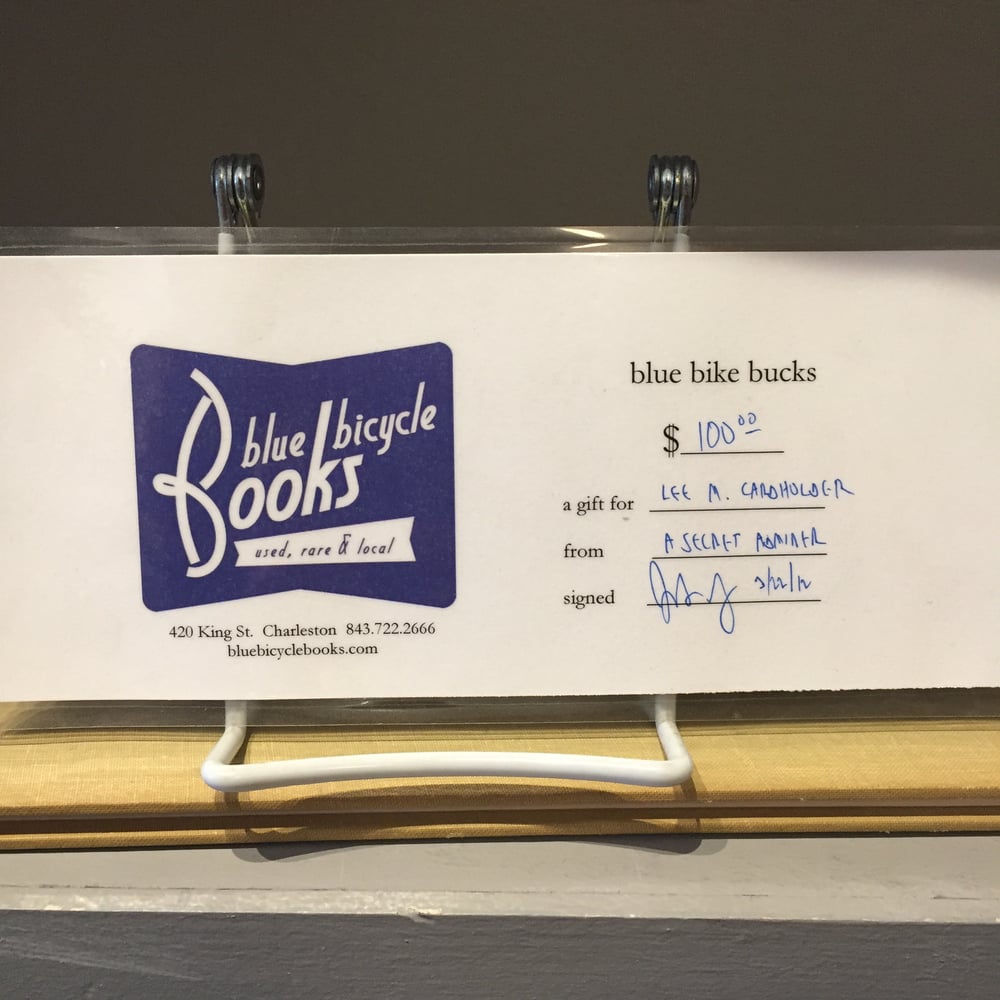 blue bicycle
Books
used, rare & local
420 King St. Charleston 843.722.2666
bluebicyclebooks.com
blue bike bucks
$ 100⁰⁰
a gift for LEE M. CARDHOLDER
from A SECRET ADMIRER
signed 3/22/12